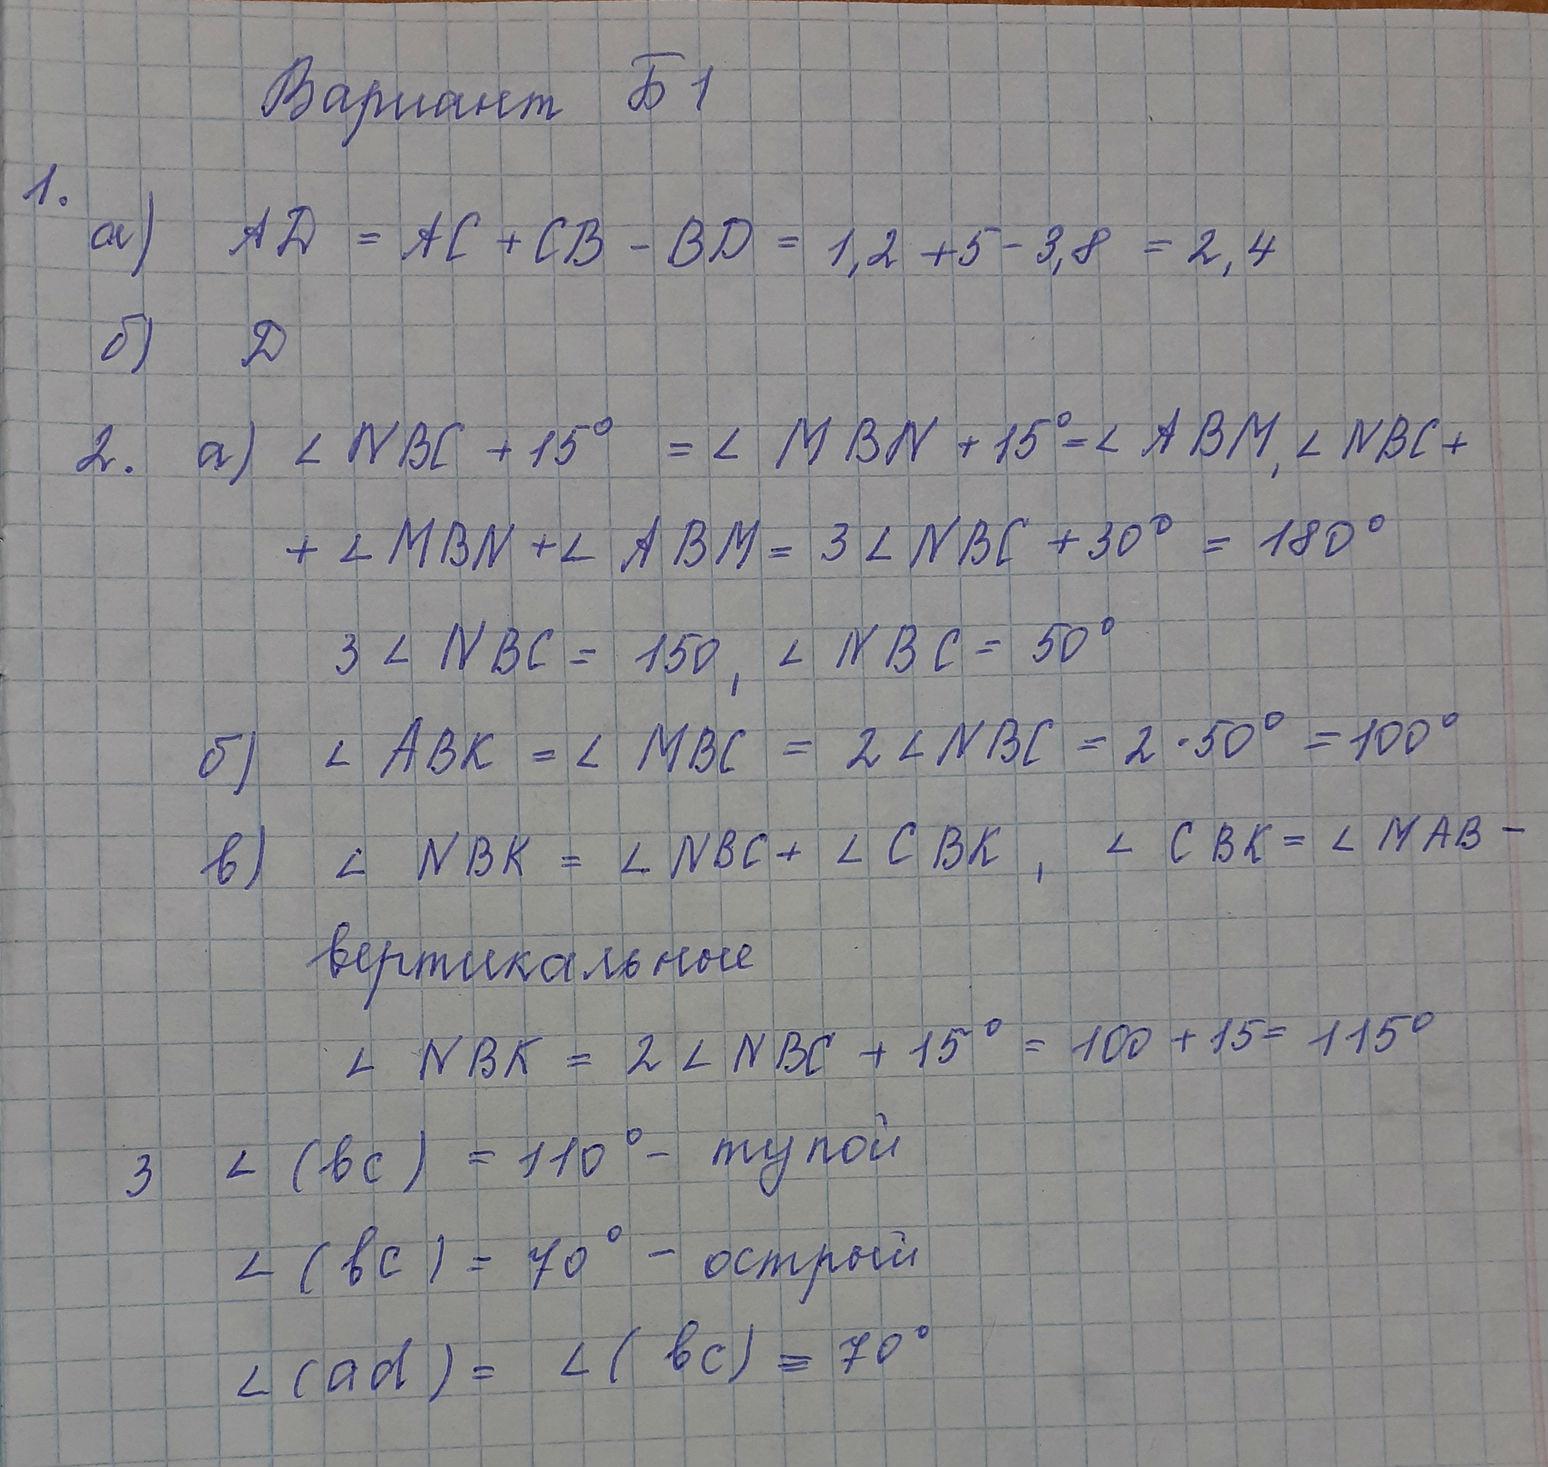 Вариант Б1
1.
а) АD = АС + СВ - ВD = 1,2 + 5 - 3,8 = 2,4
б) D
2. а) ∠ NBC + 15° = ∠ MBN + 15° = ∠ ABM, ∠ NBC +
+ ∠ MBN + ∠ ABM = 3 ∠ NBC + 30° = 180°
3 ∠ NBC = 150, ∠ NBC = 50°
б) ∠ ABK = ∠ MBC = 2 ∠ NBC = 2 · 50° = 100°
в) ∠ NBK = ∠ NBC + ∠ CBK, ∠ CBK = ∠ MAB -
вертикальные
∠ NBK = 2 ∠ NBC + 15° = 100 + 15 = 115°
3 ∠ (bc) = 110° - тупой
∠ (bc) = 70° - острый
∠ (ad) = ∠ (bc) = 70°